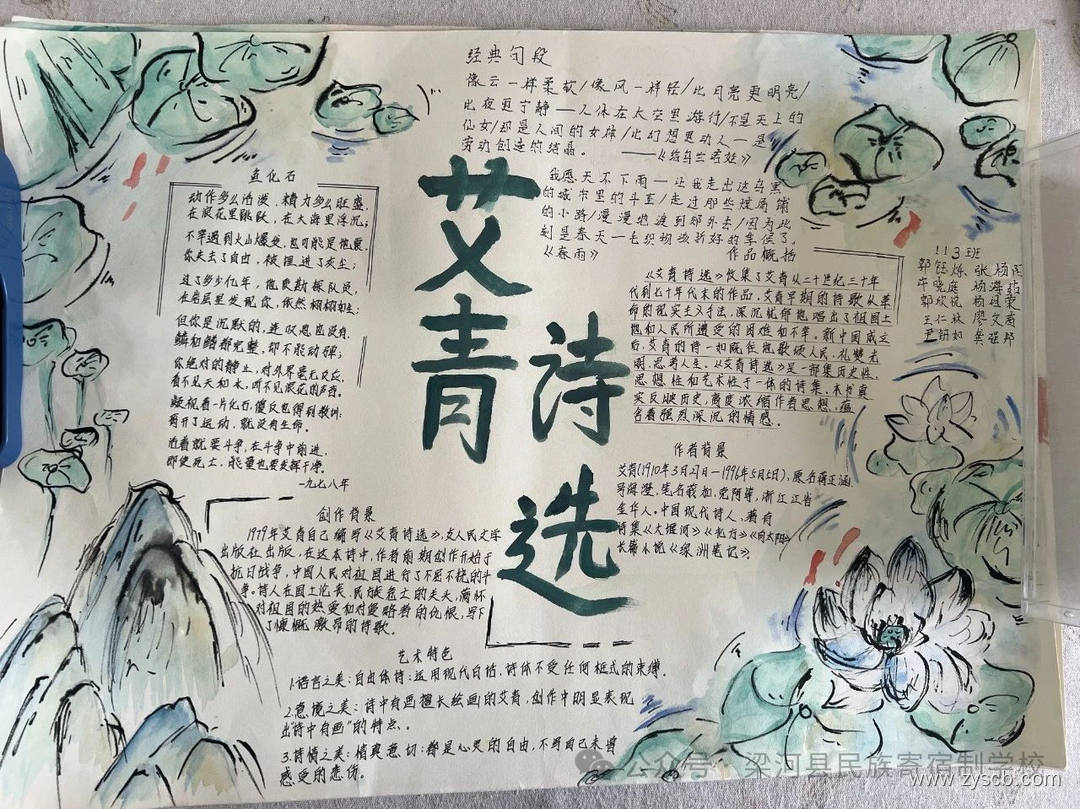 经典句段
像云一样柔软/像风一样轻/比月亮更明亮/
比夜更宁静——人体在太空里游行/不是天上的
仙女/却是人间的女神/比幻想更动人——是
劳动创造的结晶。 ——《给乌兰诺娃》
我愿天不下雨——让我走出这乌黑
的城市里的斗室/走过那些煤屑铺
的小路/漫漫地渡到郊外去/因为此
刻是春天——毛织物该折好的季候了。
《春雨》
鱼化石
动作多么活泼，精力多么旺盛，
在浪花里跳跃，在大海里浮沉；
不幸遇到火山爆发，也可能是地震，
你失去了自由，被埋进了灰尘；
过了多少亿年，地质勘探队员，
在岩层里发现你，依然栩栩如生；
但你是沉默的，连叹息也没有，
鳞和鳍都完整，却不能动弹；
你绝对的静止，对外界毫无反应，
看不见天和水，听不见浪花的声音。
凝视着一片化石，傻瓜也得到教训：
离开了运动，就没有生命。
活着就要斗争，在斗争中前进，
即使死亡，能量也要发挥干净。
一九七八年
艾青诗选
作品概括
《艾青诗选》收集了艾青从二十世纪三十年
代到七十年代末的作品，艾青早期的诗歌以革
命的现实主义手法，深沉忧郁地唱出了祖国土
地和人民所遭受的困难和不幸，新中国成立
后，艾青的诗一如既往地歌颂人民，礼赞光
明，思考人生。《艾青诗选》是一部集历史性、
思想性和艺术性于一体的诗集，本书真
实反映历史，高度浓缩作者思想，蕴
含着强烈深沉的情感。
113班
郭钰烁、张杨
杨海茹
郭欣悦 杨祖荣
王仁林 廖文高
作者背景
艾青(1910年3月27日—1996年5月5日)，原名蒋正涵
号海澄，笔名莪加、克阿等，浙江省
金华人，中国现代诗人，著有
诗集《大堰河》《北方》《向太阳》
长篇小说《绿洲笔记》。
创作背景
1979年艾青自己编写《艾青诗选》，交人民文学
出版社出版，在这本诗中，作者前期创作开始于
抗日战争，中国人民对祖国进行了不屈不挠的斗
争。诗人在国土沦丧、民族危亡的关头，满怀
对祖国的热爱和对侵略者的仇恨，写下
了慷慨激昂的诗歌。
艺术特色
1.语言之美：自由体诗：运用现代白话，诗体不受任何格式的束缚。
2.意境之美：诗中有画擅长绘画的艾青，创作中明显表现
出“诗中有画”的特点。
3.诗情之美：情真意切：都是心灵的自由，不写自己未曾
感受的悲伤。
公众号·梁河县民族寄宿制学校
www.zyscb.com